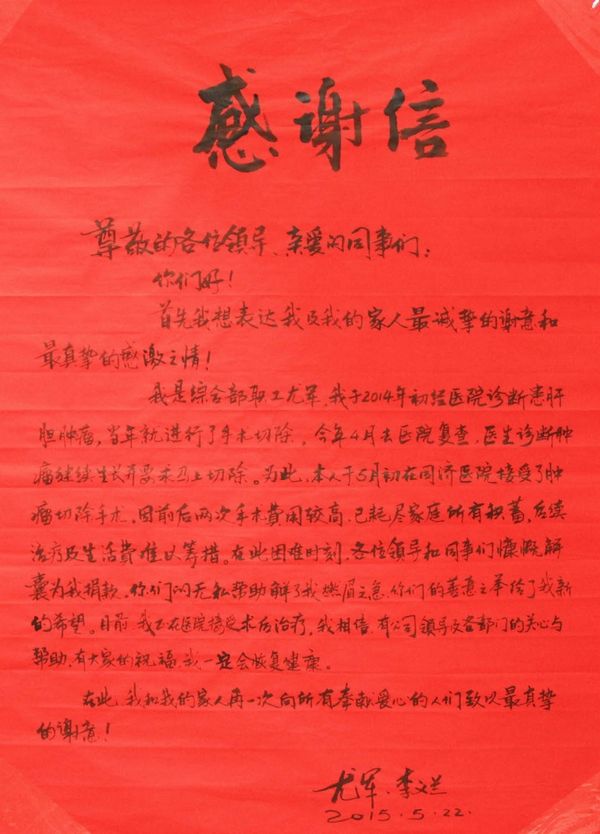 感谢信
尊敬的各位领导、亲爱的同事们:
你们好!
首先我想表达我及我的家人最诚挚的谢意和
最真挚的感激之情!
我是综合部职工尤军,我于2014年初经医院诊断患肝
胆肿瘤,当年就进行了手术切除。今年4月去医院复查,医生诊断肿
瘤继续生长并要求马上切除。为此,本人于5月初在同济医院接受了肿
瘤切除手术,因前后两次手术费用较高,已耗尽家庭所有积蓄,后续
治疗及生活费难以筹措。在此困难时刻,各位领导和同事们慷慨解
囊为我捐款,你们的无私帮助解了我燃眉之急,你们的善意之举给了我新
的希望。目前,我正在医院接受术后治疗,我相信,有公司领导及各部门的关心与
帮助,有大家的祝福,我一定会恢复健康。
在此,我和我的家人再一次向所有奉献爱心的人们致以最真挚
的谢意!
尤军、李文兰
2015.5.22.